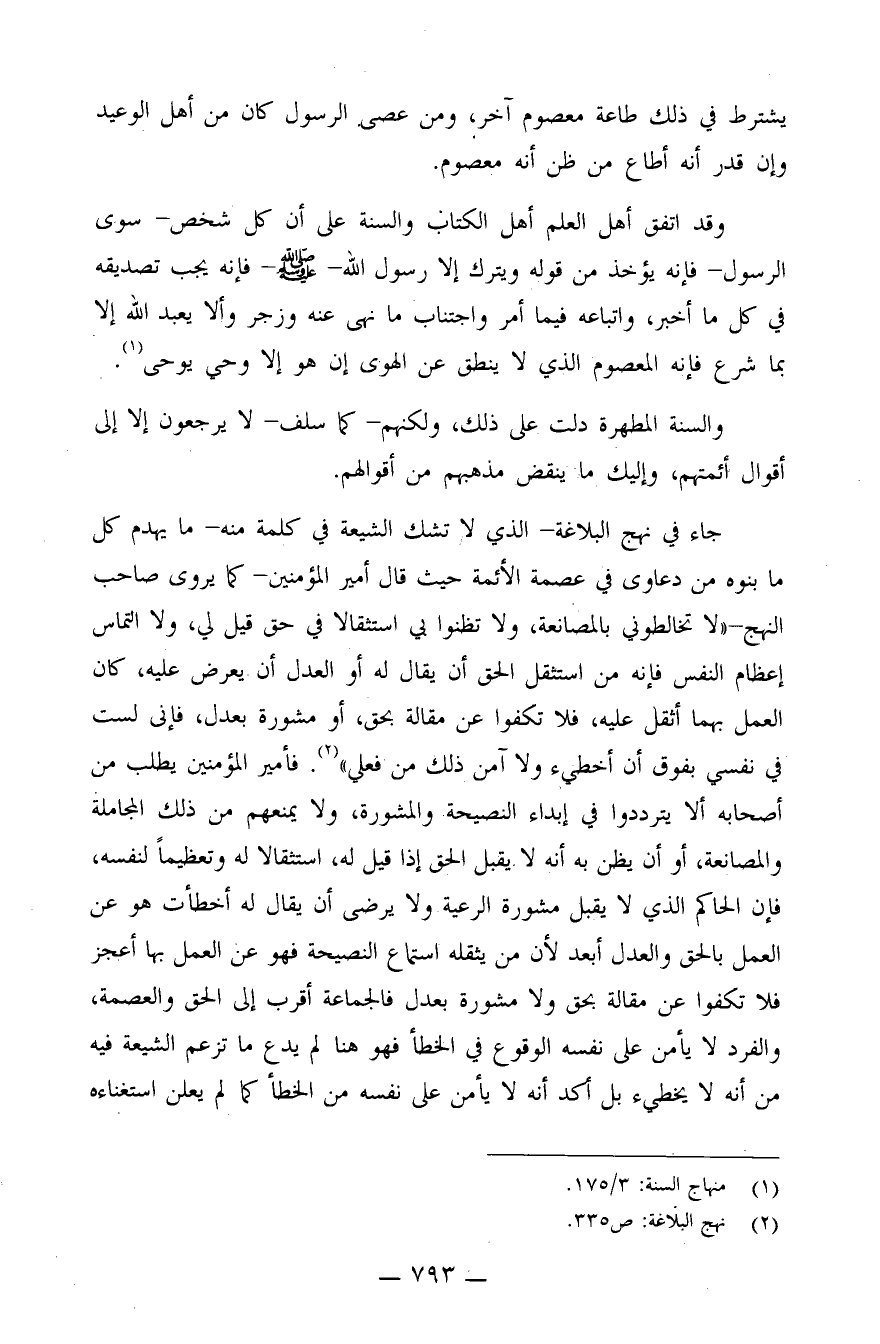 يشترط في ذلك طاعة معصوم آخر، ومن عصى الرسول كان من أهل الوعيد
وإن قدر أنه أطاع من ظن أنه معصوم.
وقد اتفق أهل العلم أهل الكتاب والسنة على أن كل شخص– سوى
الرسول– فإنه يؤخذ من قوله ويترك إلا رسول الله– ﷺ– فإنه يجب تصديقه
في كل ما أخبر، واتباعه فيما أمر واجتناب ما نهى عنه وزجر وألا يعبد الله إلا
بما شرع فإنه المعصوم الذي لا ينطق عن الهوى إن هو إلا وحي يوحى(١).
والسنة المطهرة دلت على ذلك، ولكنهم– كما سلف– لا يرجعون إلا إلى
أقوال أئمتهم، وإليك ما ينقض مذهبهم من أقوالهم.
جاء في نهج البلاغة– الذي لا تشك الشيعة في كلمة منه– ما يهدم كل
ما بنوه من دعاوى في عصمة الأئمة حيث قال أمير المؤمنين– كما يروى صاحب
النهج–«لا تخالطوني بالمصانعة، ولا تظنوا بي استثقالا في حق قيل لي، ولا التماس
إعظام النفس فإنه من استثقل الحق أن يقال له أو العدل أن يعرض عليه، كان
العمل بهما أثقل عليه، فلا تكفوا عن مقالة بحق، أو مشورة بعدل، فإنى لست
في نفسي بفوق أن أخطيء ولا آمن ذلك من فعلي»(٢). فأمير المؤمنين يطلب من
أصحابه ألا يترددوا في إبداء النصيحة والمشورة، ولا يمنعهم من ذلك المجاملة
والمصانعة، أو أن يظن به أنه لا يقبل الحق إذا قيل له، استثقالا له وتعظيماً لنفسه،
فإن الحاكم الذي لا يقبل مشورة الرعية ولا يرضى أن يقال له أخطأت هو عن
العمل بالحق والعدل أبعد لأن من يثقله استماع النصيحة فهو عن العمل بها أعجز
فلا تكفوا عن مقالة بحق ولا مشورة بعدل فالجماعة أقرب إلى الحق والعصمة،
والفرد لا يأمن على نفسه الوقوع في الخطأ فهو هنا لم يدع ما تزعم الشيعة فيه
من أنه لا يخطيء بل أكد أنه لا يأمن على نفسه من الخطأ كما لم يعلن استغناءه
(١) منهاج السنة: ١٧٥/٣.
(٢) نهج البلاغة: ص٣٣٥.
— ٧٩٣ —